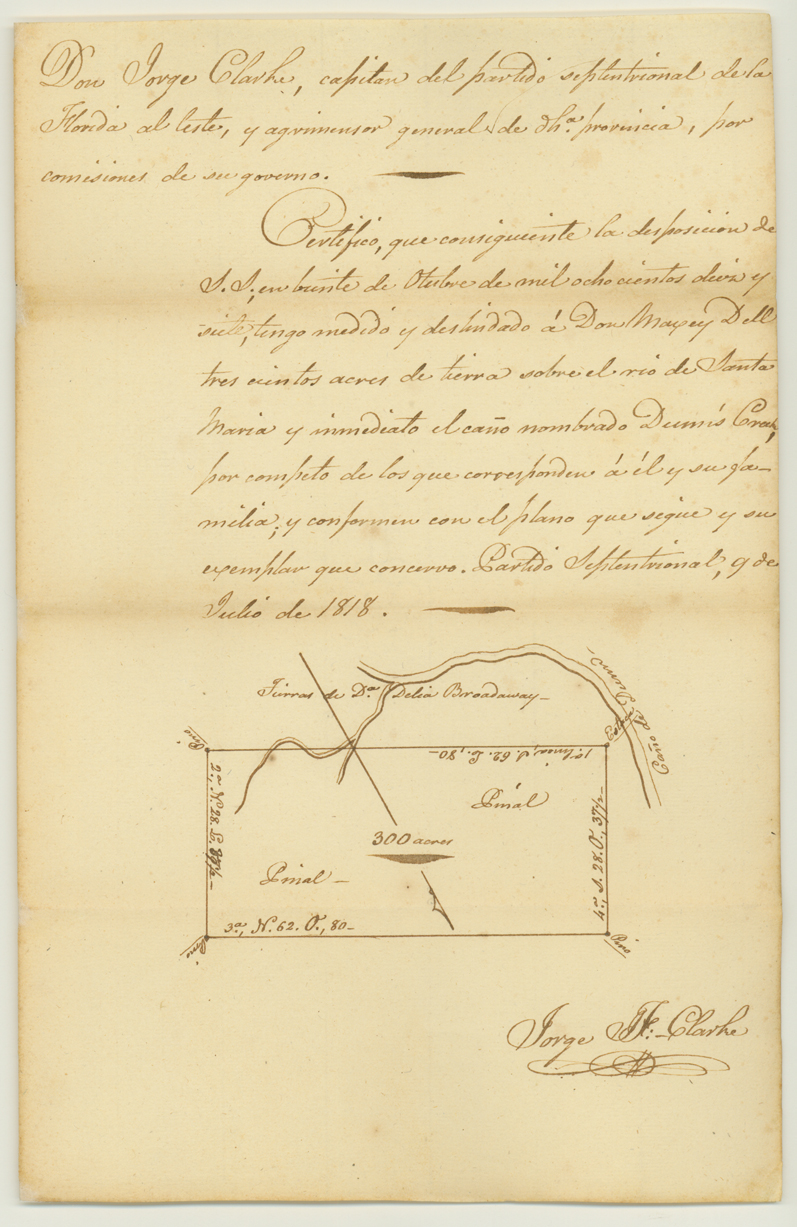 Don Jorge Clarke, capitan del partido septentrional de la
Florida al leste, y agrimensor general de dha. provincia, por
comisiones de su governo.
Certifico, que consiguiente la disposicion de
S. S., en beinte de Otubre de mil ochocientos diez y
siete, tengo medido y deslindado á Don Maxey Dell
tres cientos acres de tierra sobre el rio de Santa
Maria y inmediato el caño nombrado Dunn's Creek,
por competo de los que corresponden á él y su fa-
milia; y conformen con el plano que sigue y su
exemplar que concervo. Partido Septentrional, 9 de
Julio de 1818.
Tierras de Da. Delia Broadaway
Caño de Dunn's
Pino
1a. linia, S. 62. E., 80
2a. N. 28. E. 37½
Pinal
300 acres
Pinal
4a. S. 28. O., 37½
3a., N. 62. O., 80
Pino
Pino
Jorge J. F. Clarke